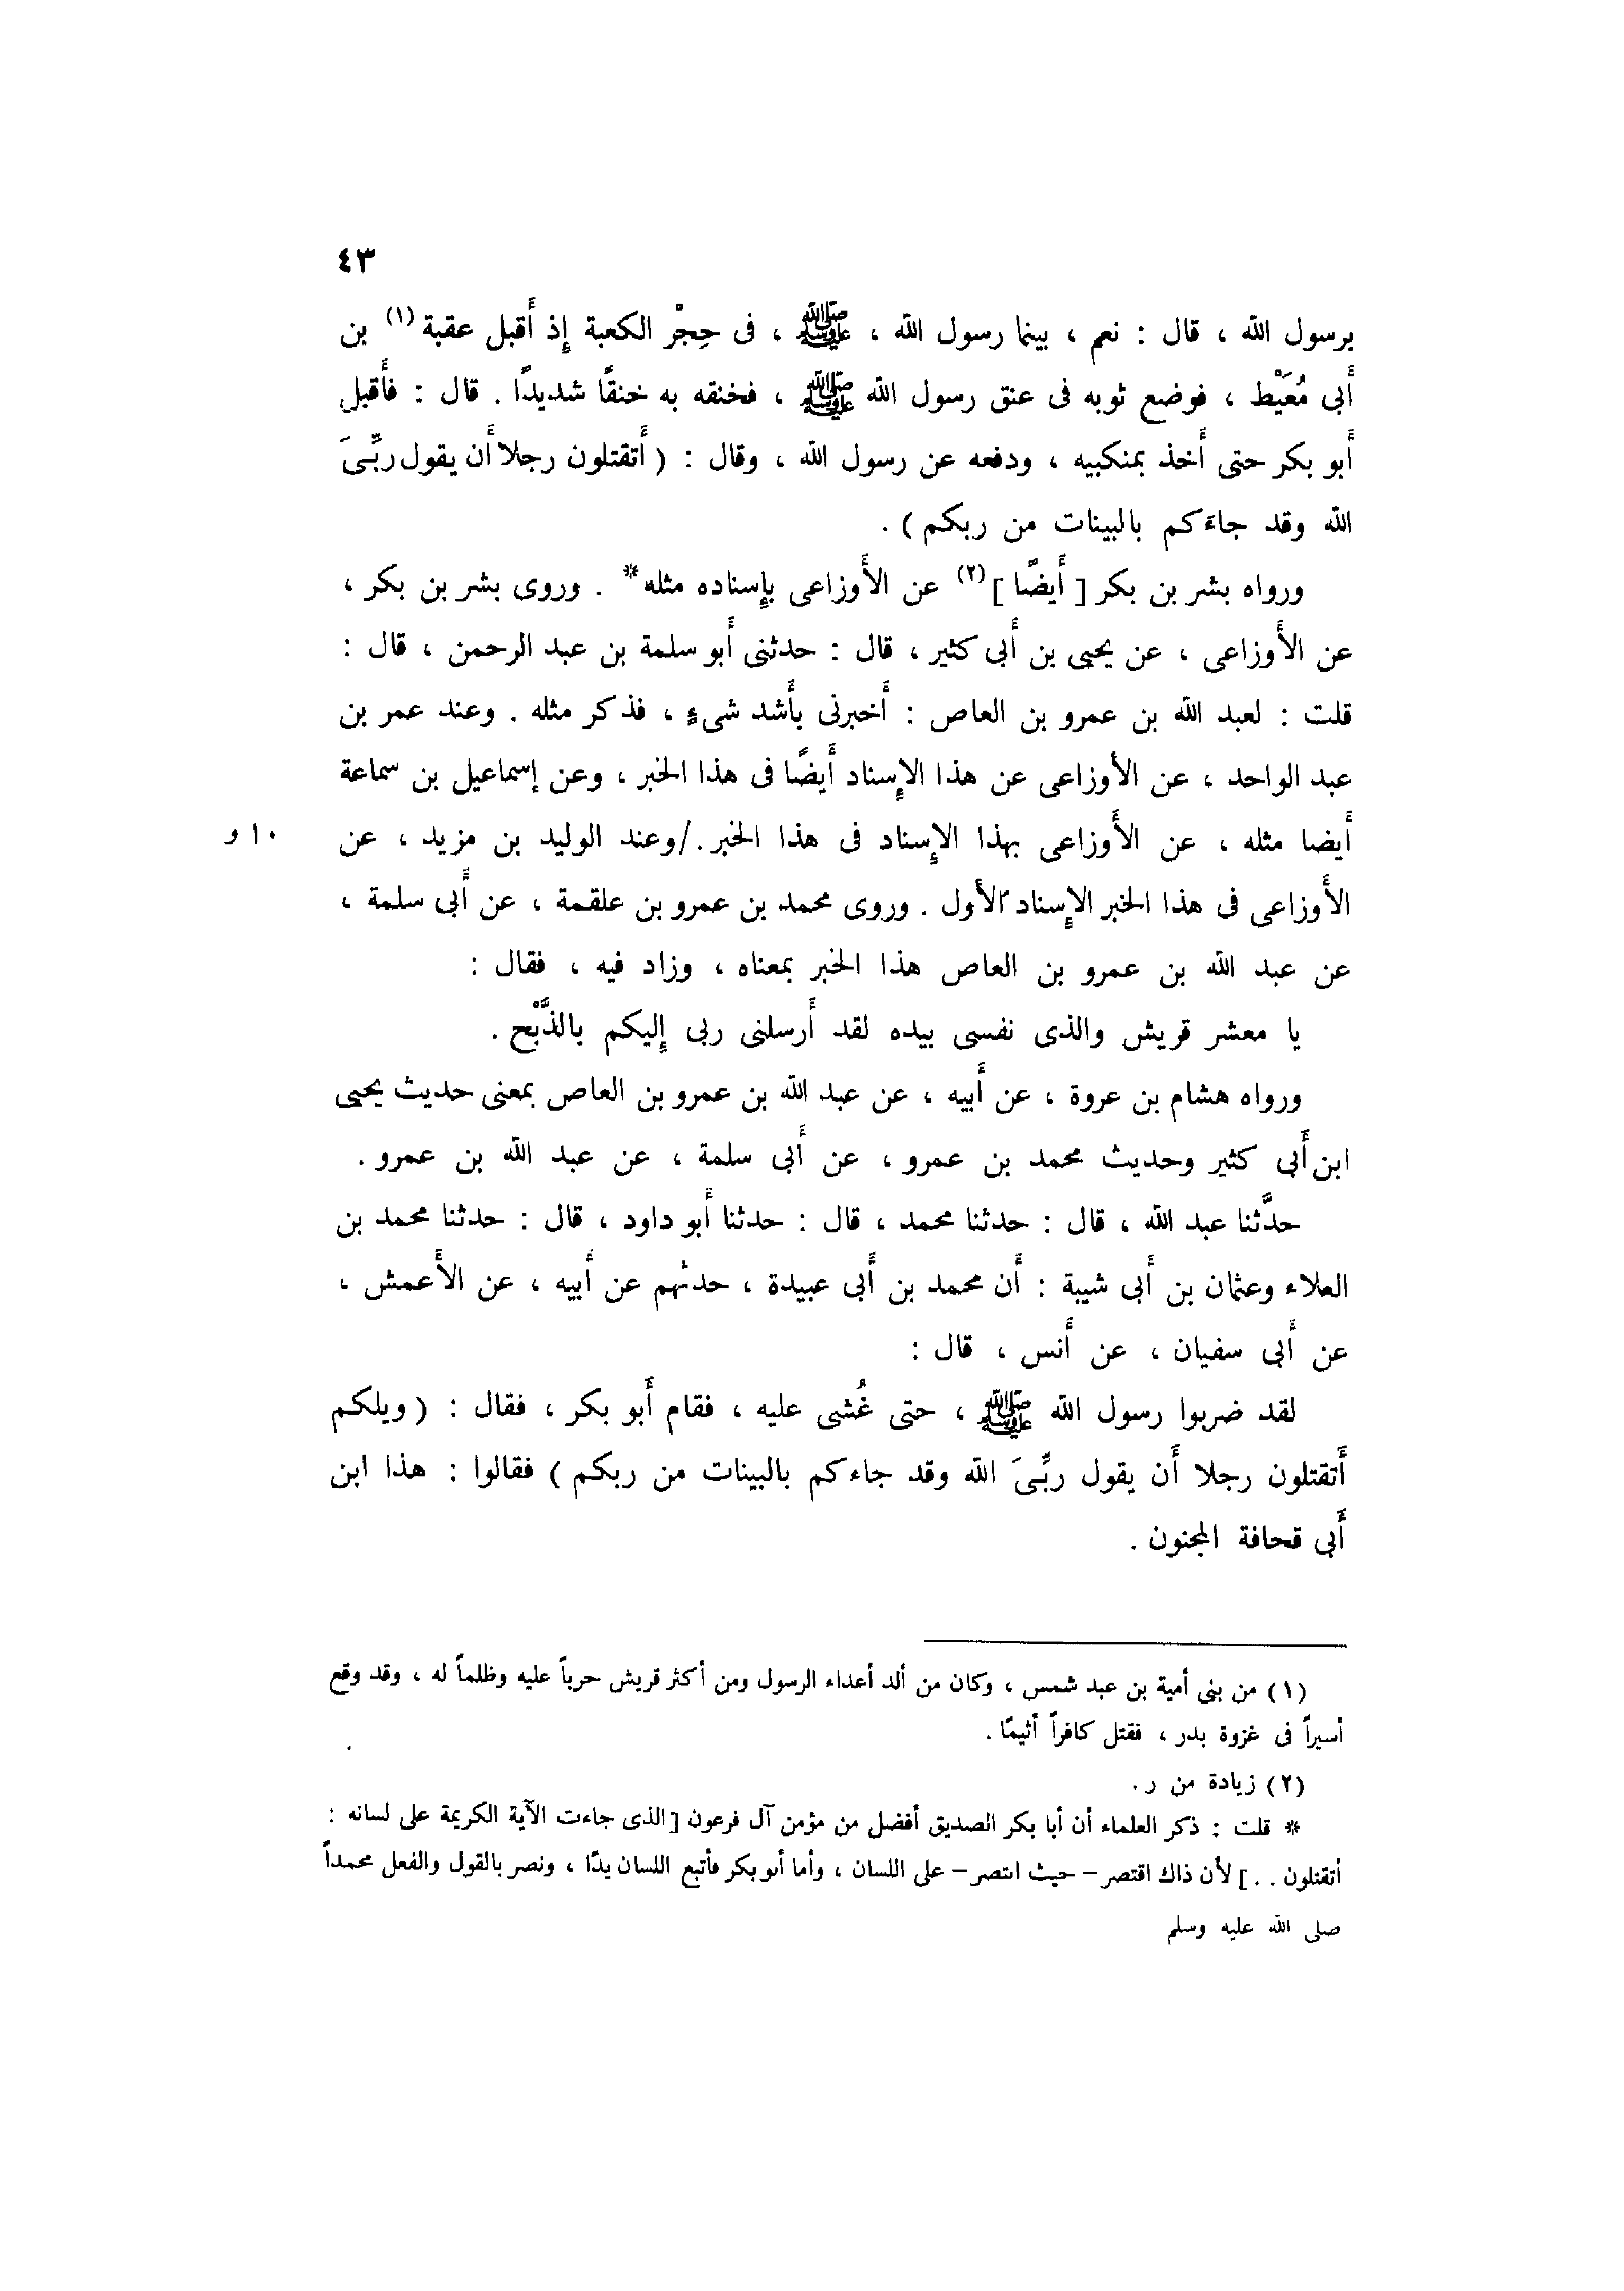 ٤٣
برسول الله ، قال : نعم ، بينما رسول الله ، ﷺ ، فى حِجْر الكعبة إِذ أَقبل عقبة (١) بن
أَبى مُعَيْط ، فوضع ثوبه فى عنق رسول الله ﷺ ، فخنقه به خنقًا شديدًا . قال : فأَقبل
أَبو بكر حتى أَخذ بمنكبيه ، ودفعه عن رسول الله ، وقال : ( أَتقتلون رجلا أَن يقول ربِّىَ
الله وقد جاءَكم بالبينات من ربكم ) .
ورواه بشر بن بكر [ أَيضًا ] (٢) عن الأَوزاعى بإِسناده مثله * . وروى بشر بن بكر ،
عن الأَوزاعى ، عن يحيى بن أَبى كثير ، قال : حدثنى أَبو سلمة بن عبد الرحمن ، قال :
قلت : لعبد الله بن عمرو بن العاص : أَخبرنى بأَشد شىءٍ ، فذكر مثله . وعند عمر بن
عبد الواحد ، عن الأوزاعى عن هذا الإِسناد أَيضًا فى هذا الخبر ، وعن إسماعيل بن سماعة
أَيضا مثله ، عن الأَوزاعى بهذا الإِسناد فى هذا الخبر . / وعند الوليد بن مزيد ، عن ١٠ و
الأَوزاعى فى هذا الخبر الإِسناد الأَول . وروى محمد بن عمرو بن علقمة ، عن أَبى سلمة ،
عن عبد الله بن عمرو بن العاص هذا الخبر بمعناه ، وزاد فيه ، فقال :
يا معشر قريش والذى نفسى بيده لقد أَرسلنى ربى إِليكم بالذَّبْح .
ورواه هشام بن عروة ، عن أَبيه ، عن عبد الله بن عمرو بن العاص بمعنى حديث يحيى
ابن أَبى كثير وحديث محمد بن عمرو ، عن أَبى سلمة ، عن عبد الله بن عمرو .
حدَّثنا عبد الله ، قال : حدثنا محمد ، قال : حدثنا أَبو داود ، قال : حدثنا محمد بن
العلاء وعثمان بن أَبى شيبة : أَن محمد بن أَبى عبيدة ، حدثهم عن أَبيه ، عن الأَعمش ،
عن أَبى سفيان ، عن أَنس ، قال :
لقد ضربوا رسول الله ﷺ ، حتى غُشى عليه ، فقام أَبو بكر ، فقال : ( ويلكم
أَتقتلون رجلا أَن يقول ربِّىَ الله وقد جاءكم بالبينات من ربكم ) فقالوا : هذا ابن
أَبى قحافة المجنون .
(١) من بنى أمية بن عبد شمس ، وكان من ألد أعداء الرسول ومن أكثر قريش حرباً عليه وظلماً له ، وقد وقع
أسيراً فى غزوة بدر ، فقتل كافراً أثيمًا .
(٢) زيادة من ر .
* قلت : ذكر العلماء أن أبا بكر الصديق أفضل من مؤمن آل فرعون [ الذى جاءت الآية الكريمة على لسانه :
أتقتلون . . ] لأن ذاك اقتصر – حيث انتصر – على اللسان ، وأما أبو بكر فأتبع اللسان يدًا ، ونصر بالقول والفعل محمداً
صلى الله عليه وسلم